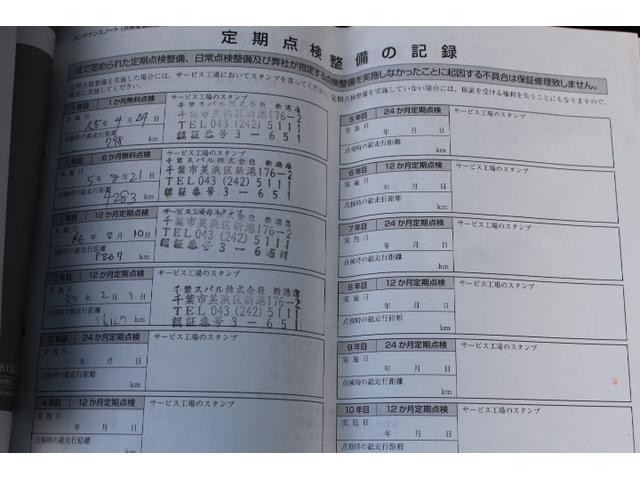 メンテナンスノート
定期点検整備の記録
法で定められた定期点検整備、日常点検整備及び弊社が指定する点検整備を実施しなかったことに起因する不具合は保証修理致しません。
点検整備を実施した場合には、サービス工場においてスタンプを貰ってください。
定期点検整備を実施していない場合には、保証を受ける権利を失うことにもなりますので、
確実に実施してください。
1年目 1か月無料点検 サービス工場のスタンプ
実施日 R5年 4月 29日
点検時の総走行距離
798 km
千葉スバル株式会社 新港店
千葉市美浜区新港176-2
TEL 043 (242) 5111
認証番号 3-651
1年目 6か月無料点検 サービス工場のスタンプ
実施日 5年 8月 21日
点検時の総走行距離
4283 km
千葉スバル株式会社 新港店
千葉市美浜区新港176-2
TEL 043 (242) 5111
認証番号 3-651
1年目 12か月定期点検 サービス工場のスタンプ
実施日 R6年 2月 10日
点検時の総走行距離
km
千葉スバル株式会社 新港店
千葉市美浜区新港176-2
TEL 043 (242) 5111
認証番号 3-651
2年目 12か月定期点検 サービス工場のスタンプ
実施日 年 2月 3日
点検時の総走行距離
km
千葉スバル株式会社 新港店
千葉市美浜区新港176-2
TEL 043 (242) 5111
認証番号 3-651
3年目 24か月定期点検 サービス工場のスタンプ
実施日 年 月 日
点検時の総走行距離
km
4年目 12か月定期点検 サービス工場のスタンプ
実施日
年 月 日
点検時の総走行距離
5年目 24か月定期点検 サービス工場のスタンプ
実施日 年 月 日
点検時の総走行距離
km
6年目 12か月定期点検 サービス工場のスタンプ
実施日 年 月 日
点検時の総走行距離
km
7年目 24か月定期点検 サービス工場のスタンプ
実施日 年 月 日
点検時の総走行距離
km
8年目 12か月定期点検 サービス工場のスタンプ
実施日 年 月 日
点検時の総走行距離
km
9年目 24か月定期点検 サービス工場のスタンプ
実施日 年 月 日
点検時の総走行距離
km
10年目 12か月定期点検 サービス工場のスタンプ
実施日
年 月 日
点検時の総走行距離
km